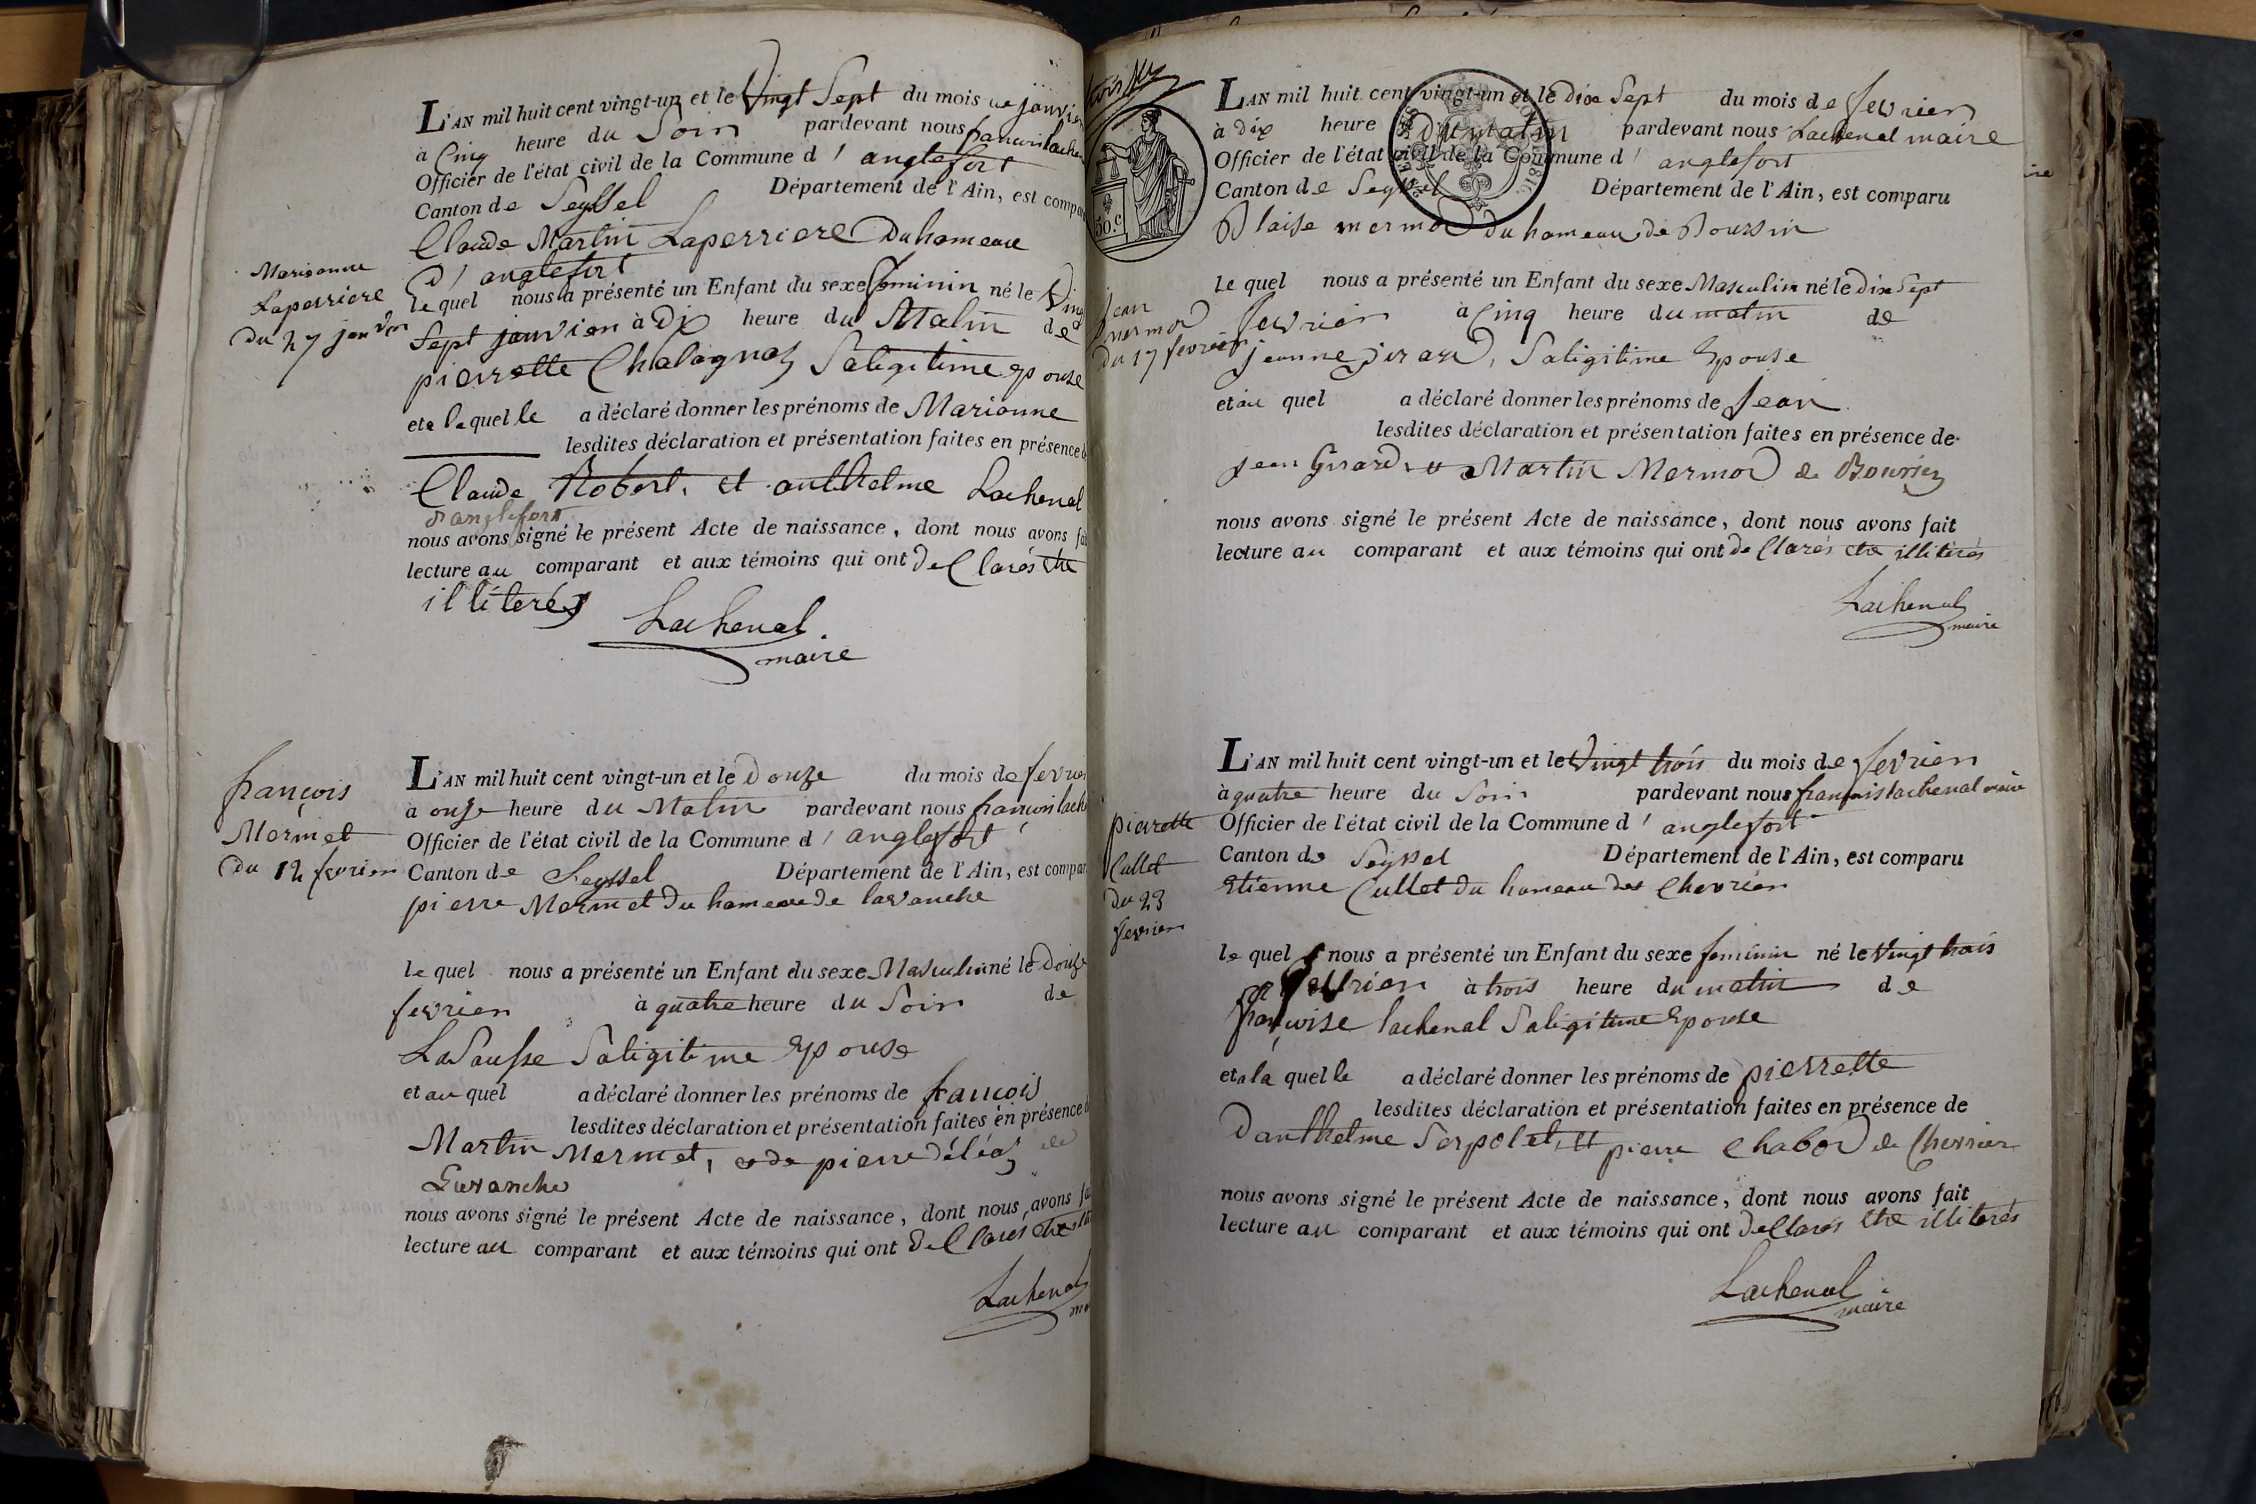 L'AN mil huit cent vingt-un et le Vingt Sept du mois de janvier
à Cinq heure du Soir pardevant nous francois lachen
Officier de l'état civil de la Commune d' anglefort
Canton de Seyssel Département de l'Ain, est compa
Claude Martin Laperriere Du hameau
D'anglefort
Marianne
Laperriere
Du 27 janvier
le quel nous a présenté un Enfant du sexe feminin né le Ving
Sept janvier à Dix heure du Matin de
pierrette Chalagnat Saligitime Epouse
et a laquelle a déclaré donner les prénoms de Marianne
lesdites déclaration et présentation faites en présence d
Claude Robert, et anthelme Lachenal
d'anglefort
nous avons signé le présent Acte de naissance, dont nous avons fai
lecture au comparant et aux témoins qui ont deClarés etre
illiterés
Lachenal
maire
françois
Mermet
Du 12 fevrier
L'AN mil huit cent vingt-un et le Douze du mois de fevrier
à onze heure du Matin pardevant nous francois lache
Officier de l'état civil de la Commune d' anglefort
Canton de Seyssel Département de l'Ain, est compar
pierre Mermet Du hameau de lavanche
le quel nous a présenté un Enfant du sexe Masculin né le Douze
fevrier à quatre heure du Soir de
LaSausse Saligitime Epouse
et au quel a déclaré donner les prénoms de francois
lesdites déclaration et présentation faites en présence d
Martin Mermet, et de pierre déléaz de
Lavanche
nous avons signé le présent Acte de naissance, dont nous avons fai
lecture au comparant et aux témoins qui ont deClarés etre
Lachenal
L'AN mil huit cent vingt-un et le dix Sept du mois de fevrier
à dix heure du matin pardevant nous Lachenal maire
Officier de l'état civil de la Commune d' anglefort
Canton de Seyssel Département de l'Ain, est comparu
50.c
Blaise mermod du hameau de Boursin
Jean
mermod
Du 17 fevrier
le quel nous a présenté un Enfant du sexe Masculin né le Dix Sept
fevrier à Cinq heure du matin de
jeanne jirard, Saligitime Epouse
et au quel a déclaré donner les prénoms de Jean
lesdites déclaration et présentation faites en présence de
Jean Girard et Martin Mermod de Boursin
nous avons signé le présent Acte de naissance, dont nous avons fait
lecture au comparant et aux témoins qui ont deClarés etre illiterés
Lachenal
maire
L'AN mil huit cent vingt-un et le Vingt trois du mois de fevrier
à quatre heure du Soir pardevant nous francois lachenal maire
Officier de l'état civil de la Commune d' anglefort
Canton de Seyssel Département de l'Ain, est comparu
Etienne Cullet du hameau des Chevrier
pierrette
Cullet
Du 23
fevrier
le quel nous a présenté un Enfant du sexe feminin né le Vingt trois
fevrier à trois heure du matin de
françoise lachenal Saligitime Epouse
et a la quelle a déclaré donner les prénoms de pierrette
lesdites déclaration et présentation faites en présence de
Danthelme Serpolet, et pierre Chabod de Chevrier
nous avons signé le présent Acte de naissance, dont nous avons fait
lecture au comparant et aux témoins qui ont deClarés etre illiterés
Lachenal
maire